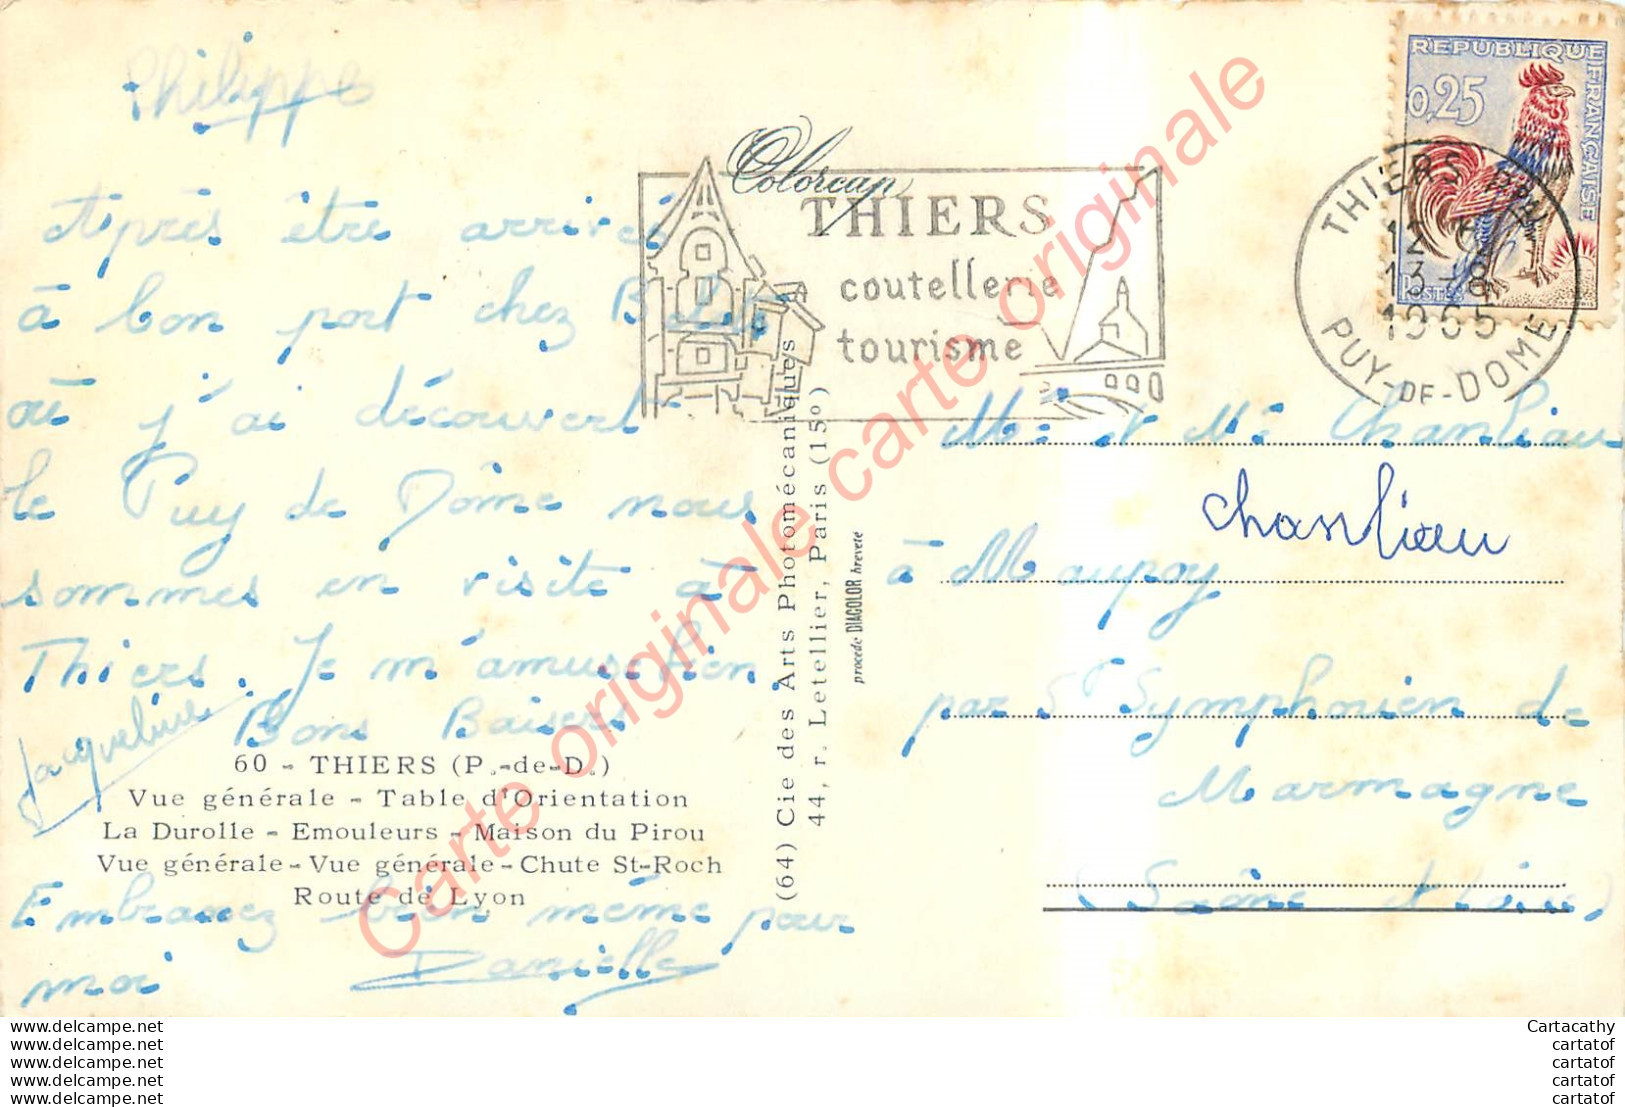 Philippe
Après être arrivés
à bon port chez
où j'ai découvert
le Puy de Dôme nous
sommes en visite à
Thiers. Je m'amuse bien
Bons Baisers
Jacqueline
60 - THIERS (P.-de-D.)
Vue générale - Table d'Orientation
La Durolle - Emouleurs - Maison du Pirou
Vue générale - Vue générale - Chute St-Roch
Route de Lyon
Embrassez bien mémé pour
moi Danielle
Colorcap
THIERS
coutellerie
tourisme
(64) Cie des Arts Photomécaniques
44, r. Letellier, Paris (15°)
procédé DIACOLOR breveté
REPUBLIQUE FRANÇAISE
0,25
POSTES
THIERS
13 - 8
1965
PUY-DE-DOME
Mr et Me Chanliau
chanliau
à Maupoy
par St Symphorien de
Marmagne
(Saône et Loire)
Carte originale carte originale Carte originale
www.delcampe.net
www.delcampe.net
www.delcampe.net
www.delcampe.net
www.delcampe.net
Cartacathy
cartatof
cartatof
cartatof
cartatof